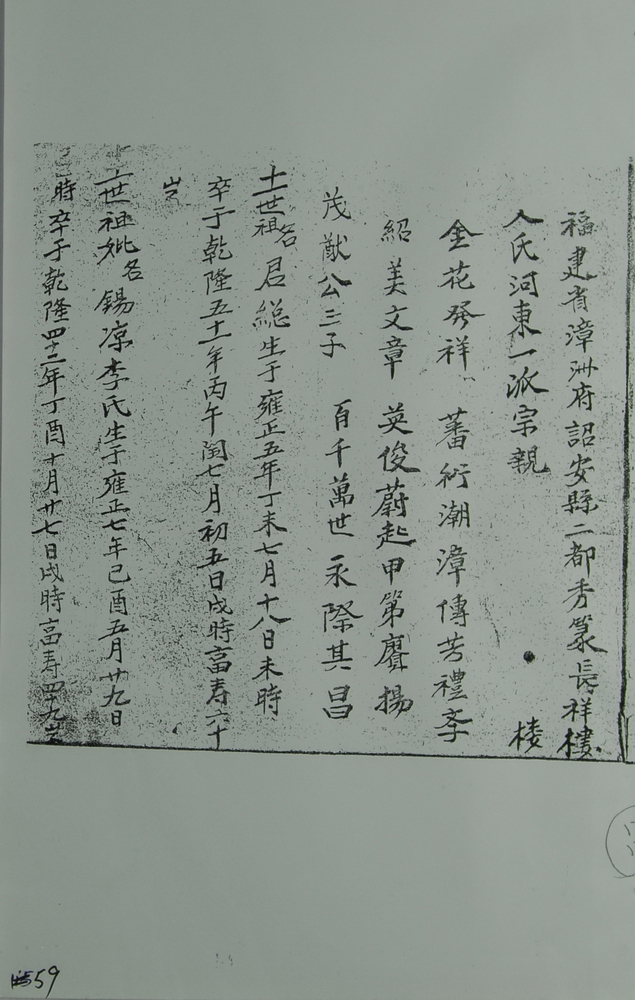 福建省漳洲府詔安縣二都秀篆長祥樓
人氏河東一派宗親 楼
金花發祥 蕃衍潮漳傳芳禮李
紹美文章 英俊蔚起甲第賡揚
茂猷公三子 百千萬世永際其昌
十一世祖名君總生于雍正五年丁未七月十八日未時
卒于乾隆五十一年丙午閏七月初五日戌時高寿六十
岁
世祖妣名錫凉李氏生于雍正七年己酉五月廿九日
時卒于乾隆四十二年丁酉十月廿七日戌時高寿四十九岁
59